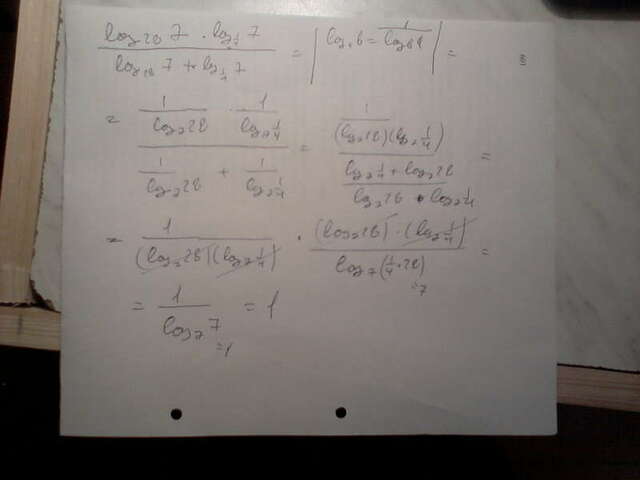 (log₂₈ 7 · log_{1/4} 7) / (log₂₈ 7 + log_{1/4} 7) = | logₐ b = 1 / log_b a | =
= (1 / log₇ 28 · 1 / log₇ 1/4) / (1 / log₇ 28 + 1 / log₇ 1/4) = (1 / (log₇ 28)(log₇ 1/4)) / ((log₇ 1/4 + log₇ 28) / (log₇ 28 · log₇ 1/4)) =
= 1 / (log₇ 28)(log₇ 1/4) · (log₇ 28) · (log₇ 1/4) / log₇ (1/4 · 28) =
=7
= 1 / log₇ 7 = 1
=1